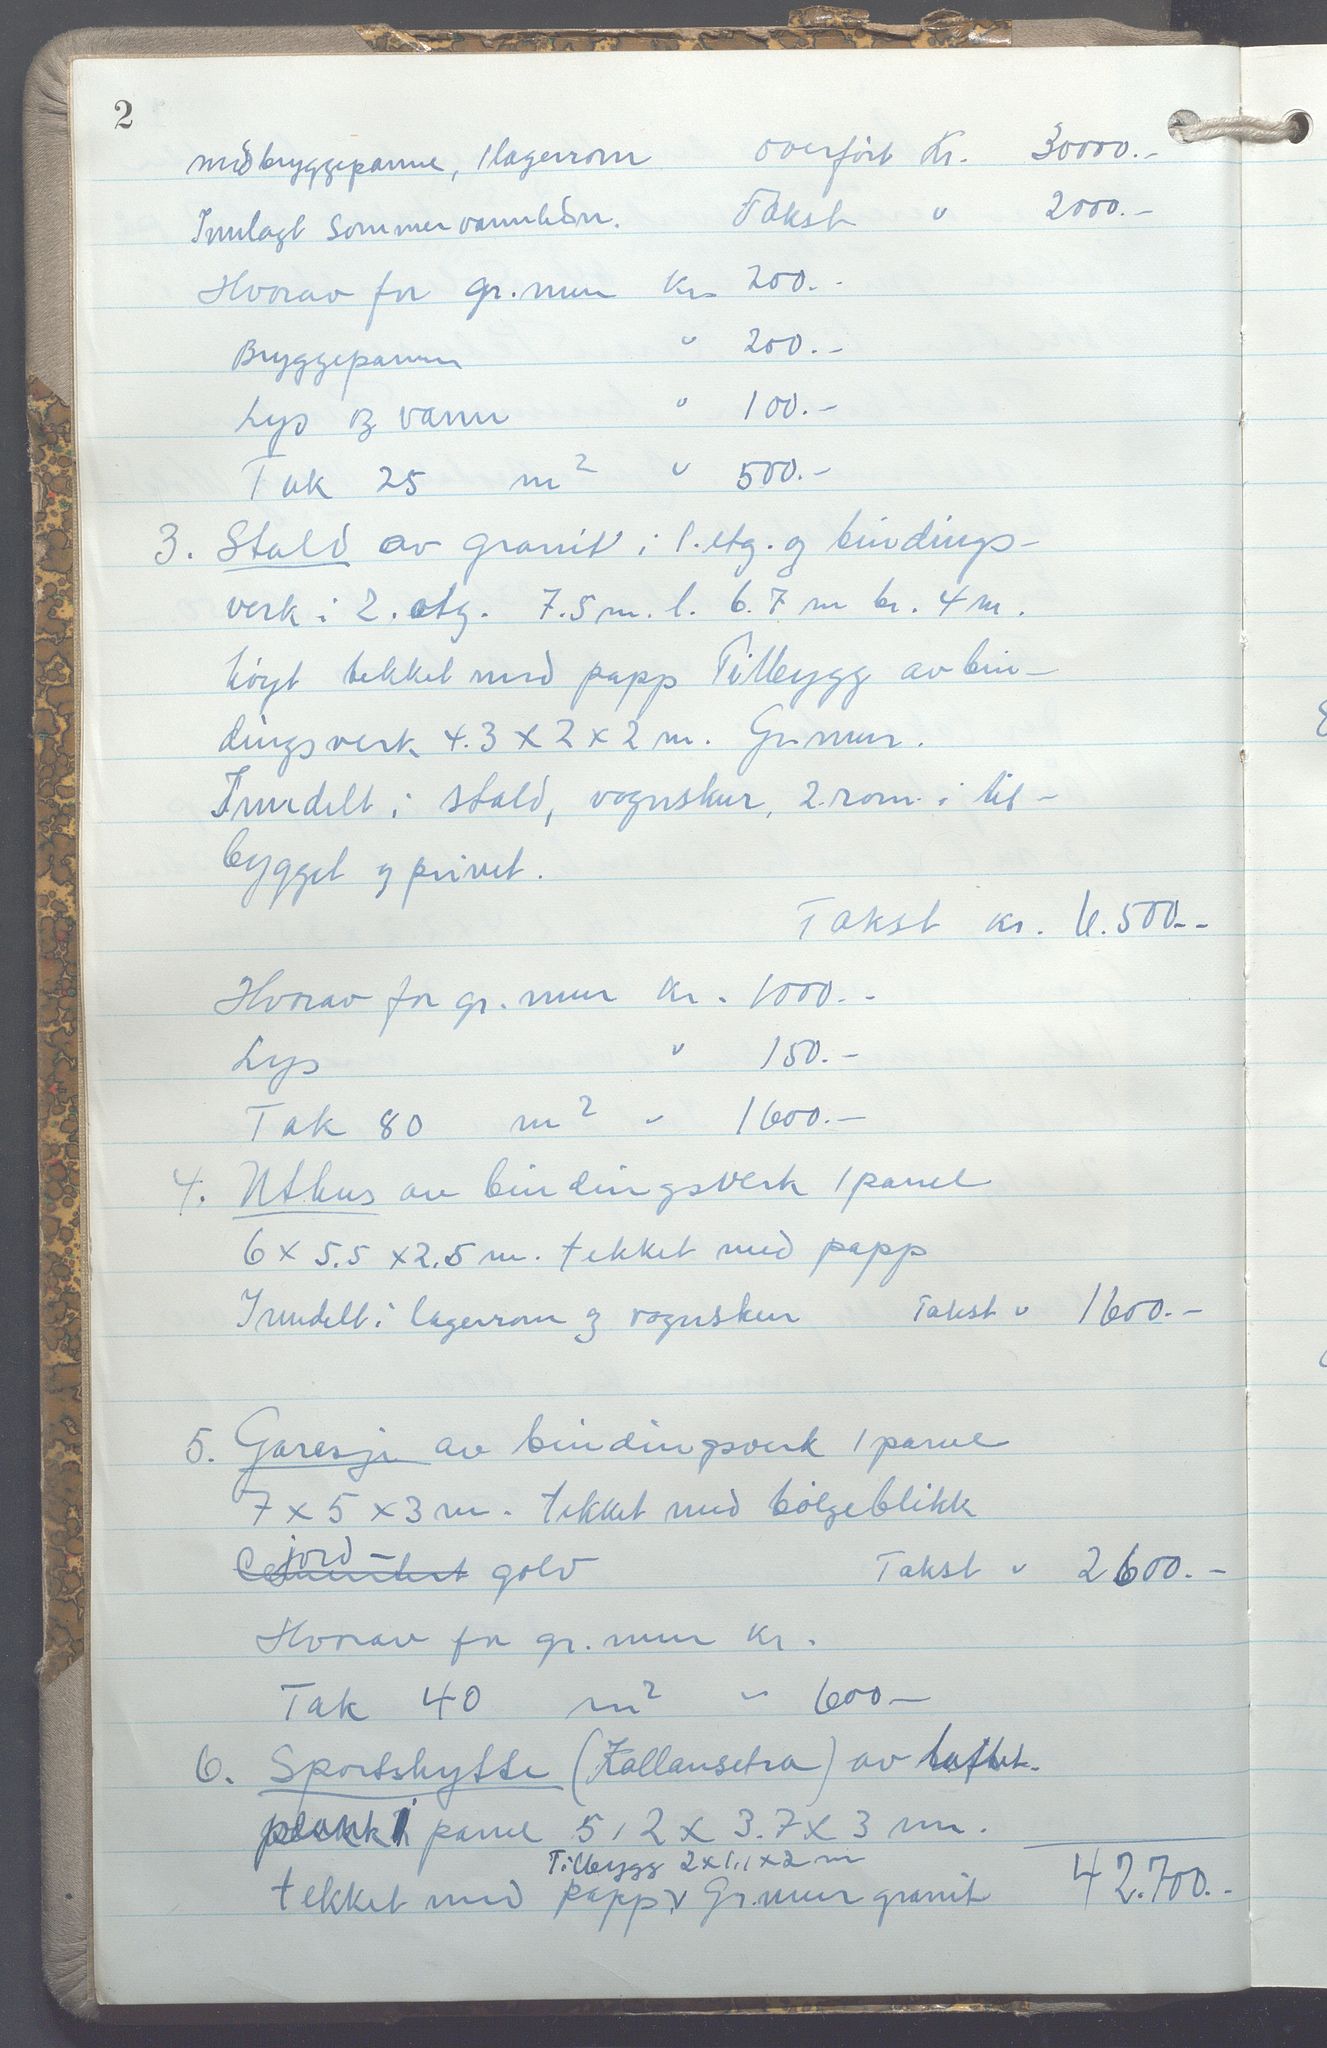 2
med bryggepanne, 1 lagerrom overført Kr. 30000.-
Innlagt sommervann Takst " 2000.-
Hvorav for gr.mur Kr. 200.-
Bryggepanne " 200.-
Lys og vann " 100.-
Tak 25 m² " 500.-
3. Stald av granit i 1.etg. og bindings-
verk i 2. etg. 7.5 m. l. 6.7 m br. 4 m.
høyt tekket med papp Tilbygg av bin-
dingsverk 4.3 x 2 x 2 m. Gr.mur.
Inndelt i stald, vognskur, 2.rom i til-
bygget og privet.
Takst kr. 6.500.-
Hvorav for gr.mur Kr. 1000.-
Lys " 150.-
Tak 80 m² " 1600.-
4. Uthus av bindingsverk 1 panel
6 x 5.5 x 2.5 m. tekket med papp
Inndelt i lagerrom og vognskur Takst " 1600.-
5. Garesje av bindingsverk 1 panel
7 x 5 x 3 m. tekket med bølgeblikk
jord-
Cementert golv Takst " 2600.-
Hvorav for gr.mur Kr.
Tak 40 m² " 600-
6. Sportshytte (Kallansetra) av laftet
plank i panel 5,2 x 3.7 x 3 m.
Tilbygg 2x1,1x2 m
tekket med papp, v Gr.mur granit 42.700.-